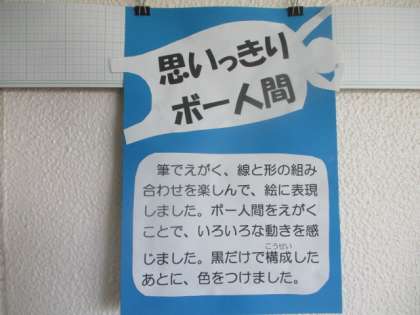 思いっきり
ボー人間
筆でえがく、線と形の組み
合わせを楽しんで、絵に表現
しました。ボー人間をえがく
ことで、いろいろな動きを感
じました。黒だけで構成した
あとに、色をつけました。